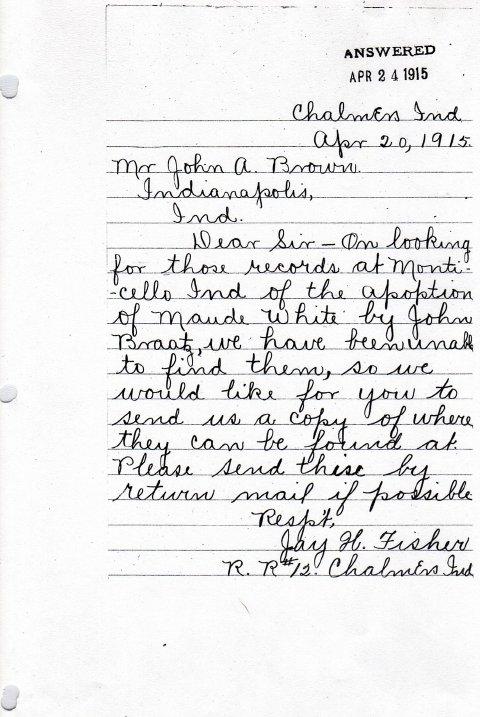 ANSWERED
APR 24 1915
Chalmers Ind
Apr 20, 1915.
Mr John A. Brown.
Indianapolis,
Ind.
Dear Sir – On looking
for those records at Monti-
-cello Ind of the apoption
of Maude White by John
Braatz, we have been unable
to find them, so we
would like for you to
send us a copy of where
they can be found at.
Please send these by
return mail if possible
Respt,
Jay H. Fisher
R. R #12. Chalmers Ind